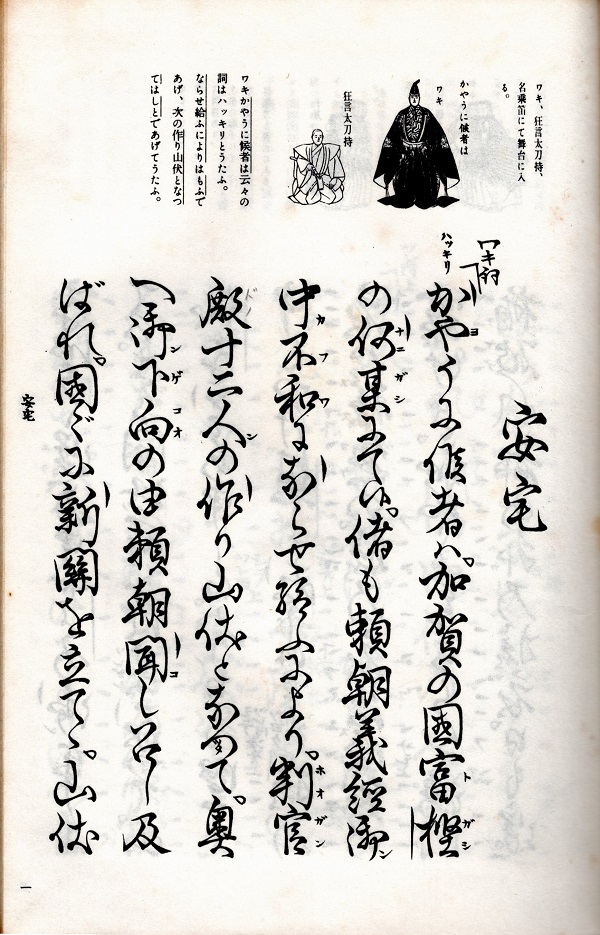 ワキ、狂言太刀持、
名乗笛にて舞台に入
る。
かやうに候者は
ワキ
狂言太刀持
ワキかやうに候者は云々の
詞はハッキリとうたふ。
ならせ給ふによりはもふで
あげ、次の作り山伏となつ
てはしとであげてうたふ。
安宅
ワキ詞
ハッキリ
かやうに候者は。加賀の国富樫
の何某にて候。偖も頼朝義経御
中不和にならせ給ふにより。判官
殿十二人の作り山伏となつて。奥
へ御下向の由頼朝聞し召し及
ばれ。国々に新関を立てゝ。山伏
安宅
一